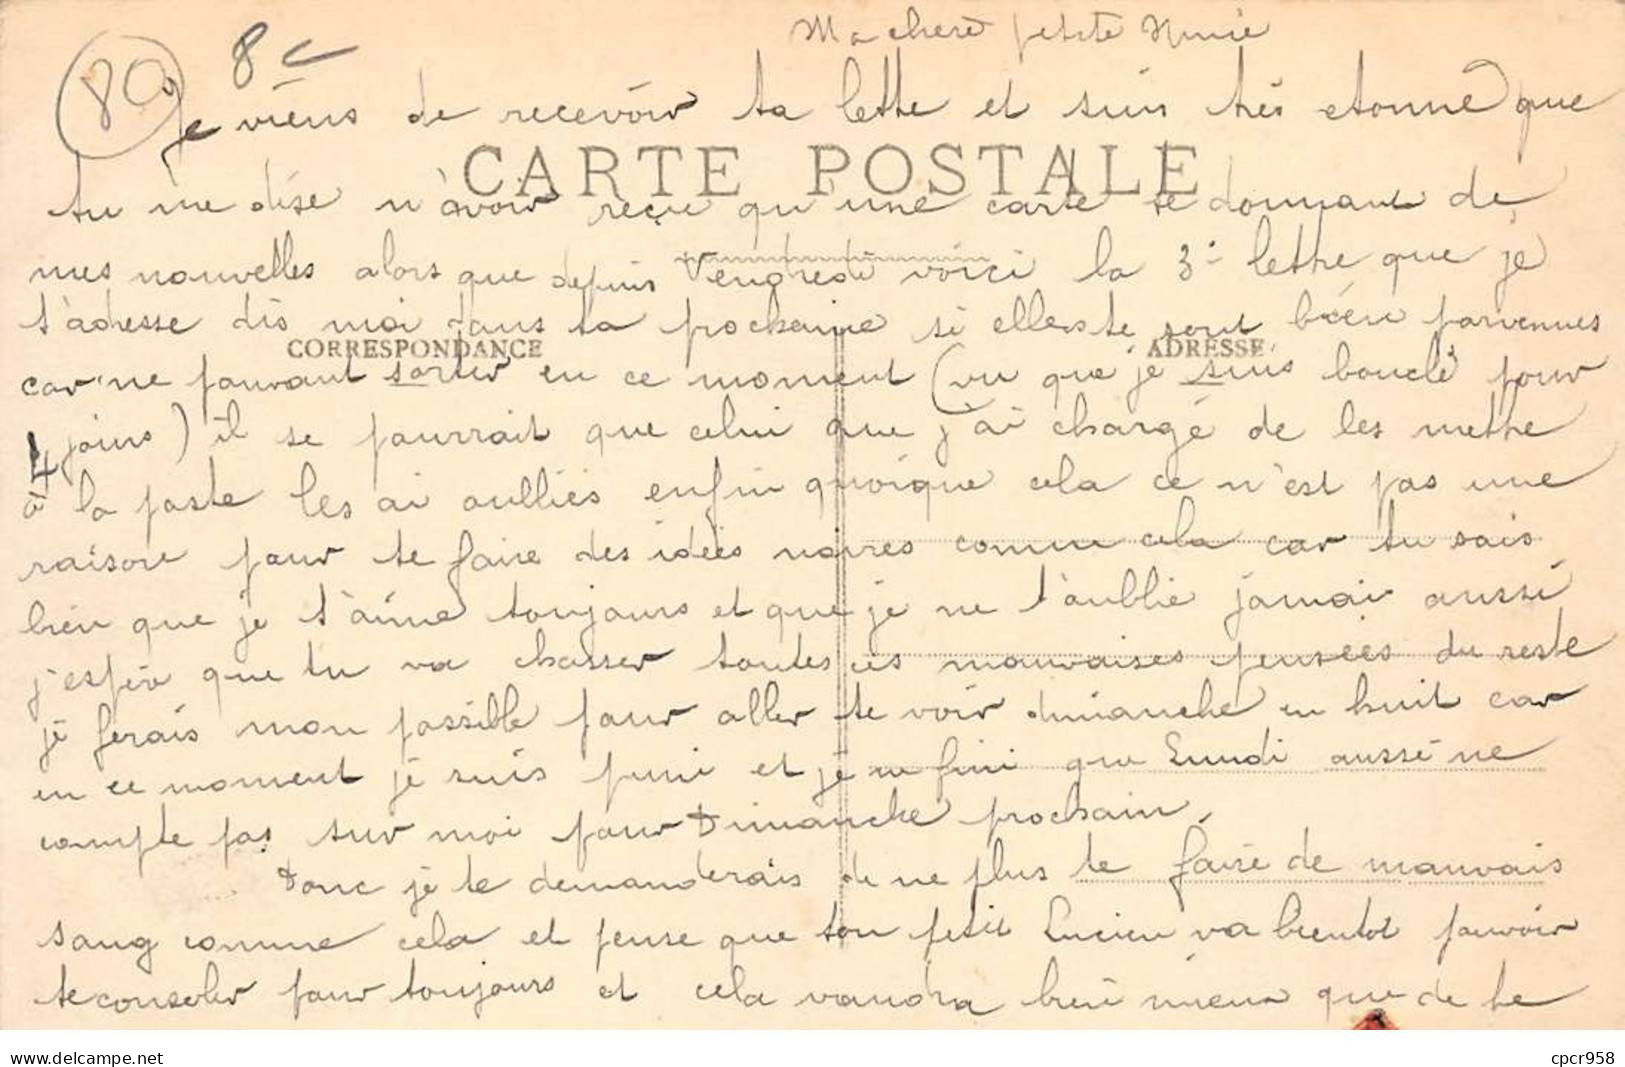 Ma chere petite Ninie
80 8c
Je viens de recevoir ta lette et suis très etonné que
CARTE POSTALE
tu me dise n'avoir reçue qu'une carte te donnant de
mes nouvelles alors que depuis Vendredi voici la 3e lettre que je
t'adresse dis moi dans ta prochaine si elles te sont bien parvenues
CORRESPONDANCE ADRESSE
car ne pouvant sortir en ce moment (vu que je suis bouclé pour
4 jours) il se pourrait que celui que j'ai chargé de les metre
à la poste les ai oulliés enfin quoique cela ce n'est pas une
raison pour te faire des idées noires comme cela car tu sais
bien que je t'aime toujours et que je ne t'oublie jamais aussi
j'espère que tu va chasser toutes ces mauvaises pensées du reste
je ferais mon possible pour aller te voir dimanche en huit car
en ce moment je suis puni et je ne fini que Lundi aussi ne
compte pas sur moi pour Dimanche prochain.
Donc je te demanderais de ne plus te faire de mauvais
sang comme cela et pense que ton petit Lucien va bientot pouvoir
te consoler pour toujours et cela vaudra bien mieux que de te
www.delcampe.net cpcr958